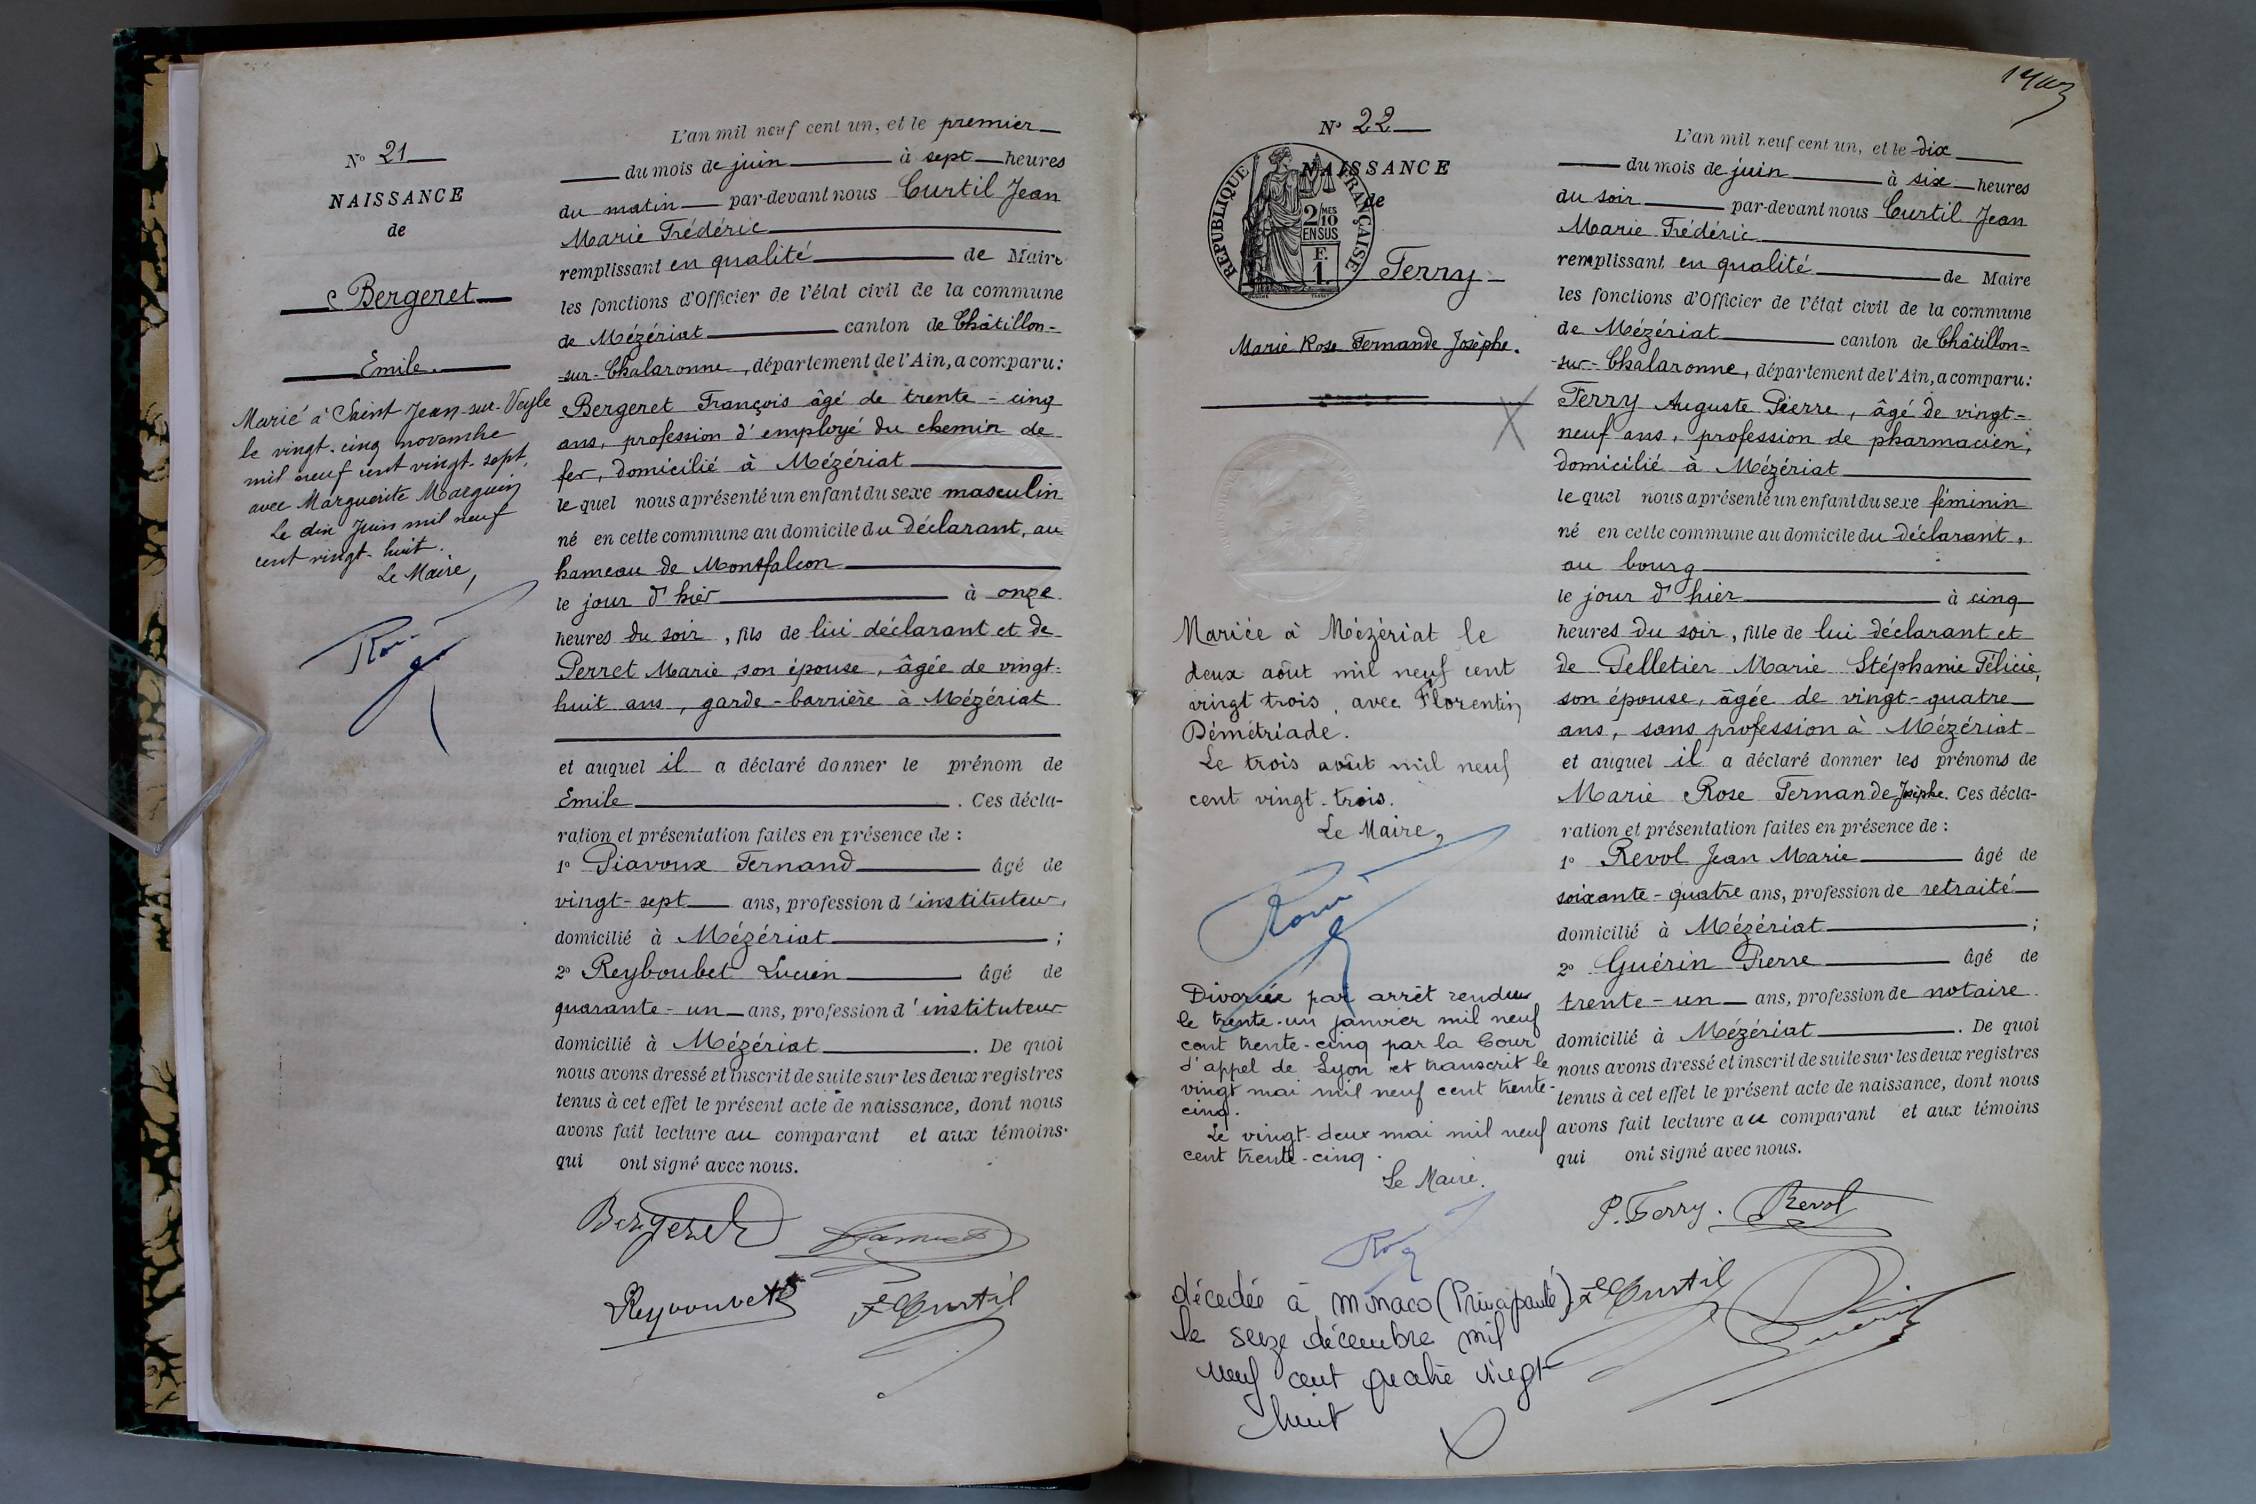 N° 21
NAISSANCE
de
Bergeret
Emile.
Marié à Saint Jean-sur-Veyle
le vingt-cinq novembre
mil neuf cent vingt-sept,
avec Marguerite
Le dix Juin mil neuf
cent vingt-huit.
Le Maire,
L'an mil neuf cent un, et le premier
du mois de juin à sept heures
du matin par-devant nous Curtil Jean
Marie Frédéric
remplissant en qualité de Maire
les fonctions d'Officier de l'état civil de la commune
de Mézériat canton de Châtillon-
sur-Chalaronne, département de l'Ain, a comparu:
Bergeret François âgé de trente-cinq
ans, profession d'employé du chemin de
fer, domicilié à Mézériat
lequel nous a présenté un enfant du sexe masculin
né en cette commune au domicile du déclarant, au
hameau de Montfalcon
le jour d'hier à onze
heures du soir, fils de lui déclarant et de
Perret Marie son épouse, âgée de vingt-
huit ans, garde-barrière à Mézériat
et auquel il a déclaré donner le prénom de
Emile. Ces décla-
ration et présentation faites en présence de :
1° Piavoux Fernand âgé de
vingt-sept ans, profession d'instituteur,
domicilié à Mézériat ;
2° Reyboubet Lucien âgé de
quarante-un ans, profession d'instituteur
domicilié à Mézériat. De quoi
nous avons dressé et inscrit de suite sur les deux registres
tenus à cet effet le présent acte de naissance, dont nous
avons fait lecture au comparant et aux témoins
qui ont signé avec nous.
Bergeret
Reyboubet F Curtil
N° 22
NAISSANCE
de
RÉPUBLIQUE FRANÇAISE
2/10 MES
EN SUS
F.
1
Ferry
Marie Rose Fernande Josèphe.
Mariée à Mézériat le
deux août mil neuf cent
vingt trois, avec Florentin
Démétriade.
Le trois août mil neuf
cent vingt-trois.
Le Maire,
Divorcée par arrêt rendu
le trente-un janvier mil neuf
cent trente-cinq par la Cour
d'appel de Lyon et transcrit le
vingt mai mil neuf cent trente-
cinq.
Le vingt-deux mai mil neuf
cent trente-cinq.
Le Maire.
décédée à Monaco (Principauté)
le seize décembre mil
neuf cent quatre vingt
huit
L'an mil neuf cent un, et le dix
du mois de juin à six heures
du soir par-devant nous Curtil Jean
Marie Frédéric
remplissant en qualité de Maire
les fonctions d'Officier de l'état civil de la commune
de Mézériat canton de Châtillon-
sur-Chalaronne, département de l'Ain, a comparu:
Ferry Auguste Pierre, âgé de vingt-
neuf ans, profession de pharmacien,
domicilié à Mézériat
lequel nous a présenté un enfant du sexe féminin
né en cette commune au domicile du déclarant,
au bourg
le jour d'hier à cinq
heures du soir, fille de lui déclarant et
de Pelletier Marie Stéphanie Félicie,
son épouse, âgée de vingt-quatre
ans, sans profession à Mézériat
et auquel il a déclaré donner les prénoms de
Marie Rose Fernande Josèphe. Ces décla-
ration et présentation faites en présence de :
1° Revol Jean Marie âgé de
soixante-quatre ans, profession de retraité
domicilié à Mézériat ;
2° Guérin Pierre âgé de
trente-un ans, profession de notaire
domicilié à Mézériat. De quoi
nous avons dressé et inscrit de suite sur les deux registres
tenus à cet effet le présent acte de naissance, dont nous
avons fait lecture au comparant et aux témoins
qui ont signé avec nous.
P. Ferry. Revol
F Curtil Guérin